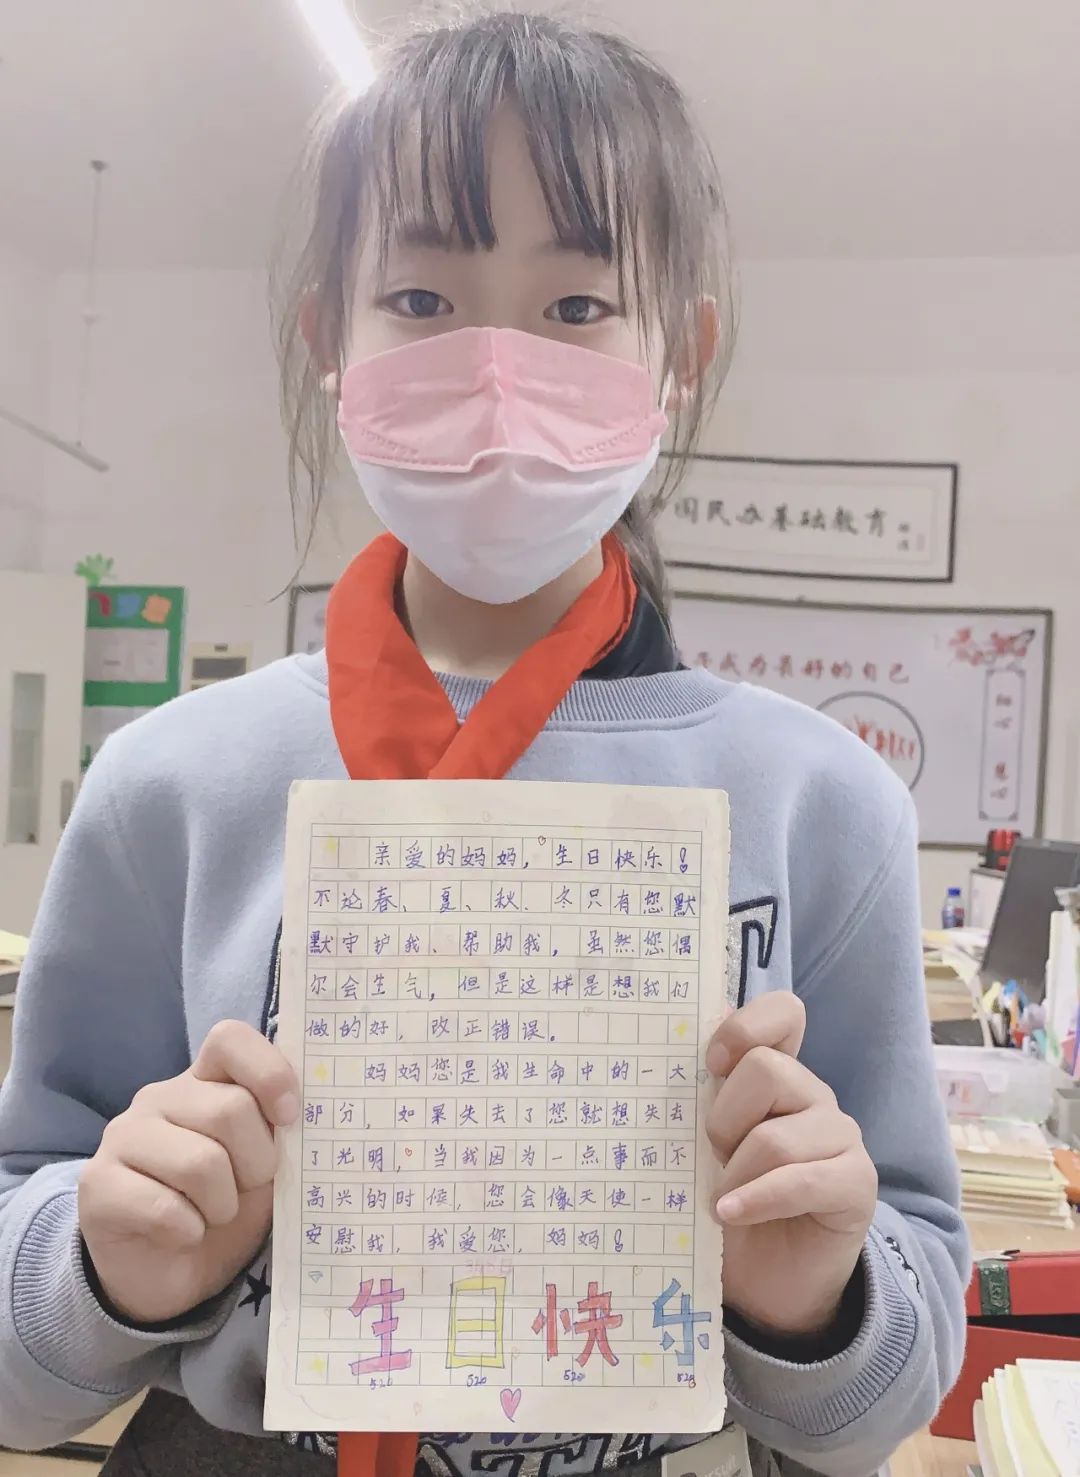 国民办基础教育
成为最好的自己
亲爱的妈妈，生日快乐！
不论春、夏、秋、冬只有您默
默守护我、帮助我，虽然您偶
尔会生气，但是这样是想我们
做的好，改正错误。
妈妈您是我生命中的一大
部分，如果失去了您就想失去
了光明，当我因为一点事而不
高兴的时候，您会像天使一样
安慰我，我爱您，妈妈！
生日快乐
520 520 520 520